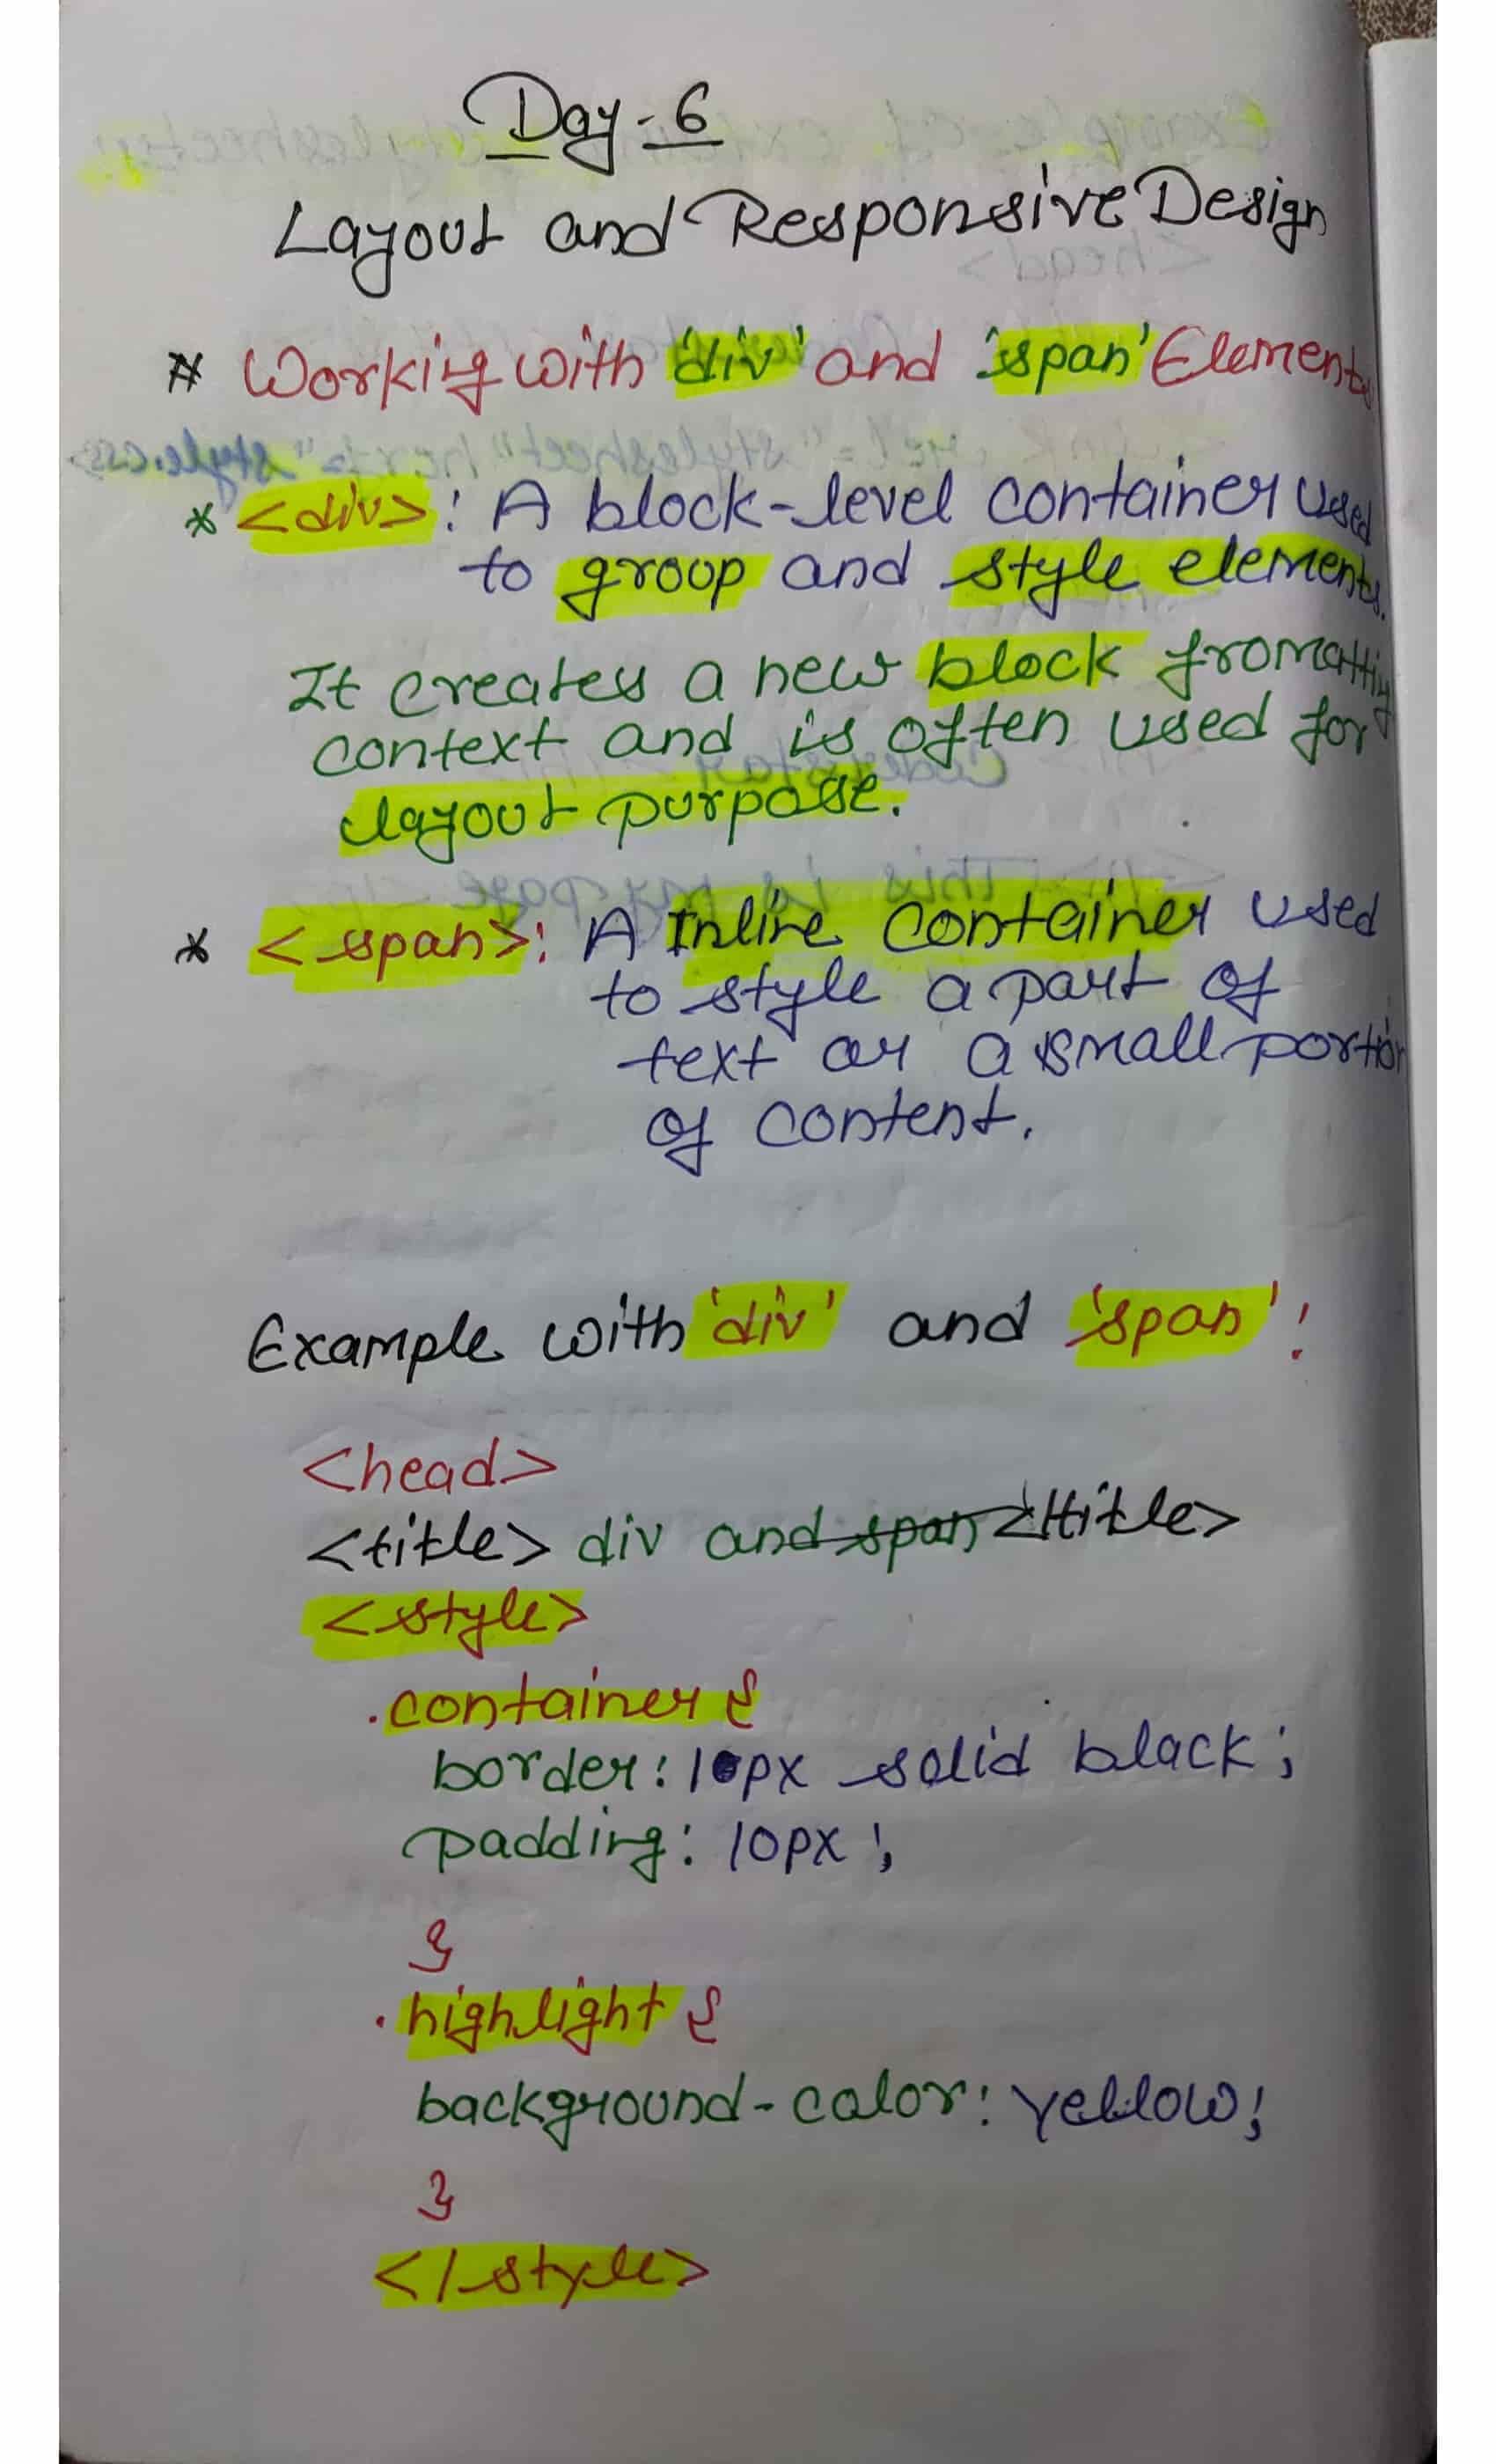 Day-6
Layout and Responsive Design
# Working with 'div' and 'span' Elements
* <div>: A block-level container used
to group and style elements.
It creates a new block fromatting
context and is often used for
layout purpose.
* <span>: A Inline container used
to style a part of
text or a small portion
of content.
Example with 'div' and 'span':
<head>
<title> div and span </title>
<style>
.container {
border: 10px solid black;
padding: 10px;
}
.highlight {
background-color: yellow;
}
</style>